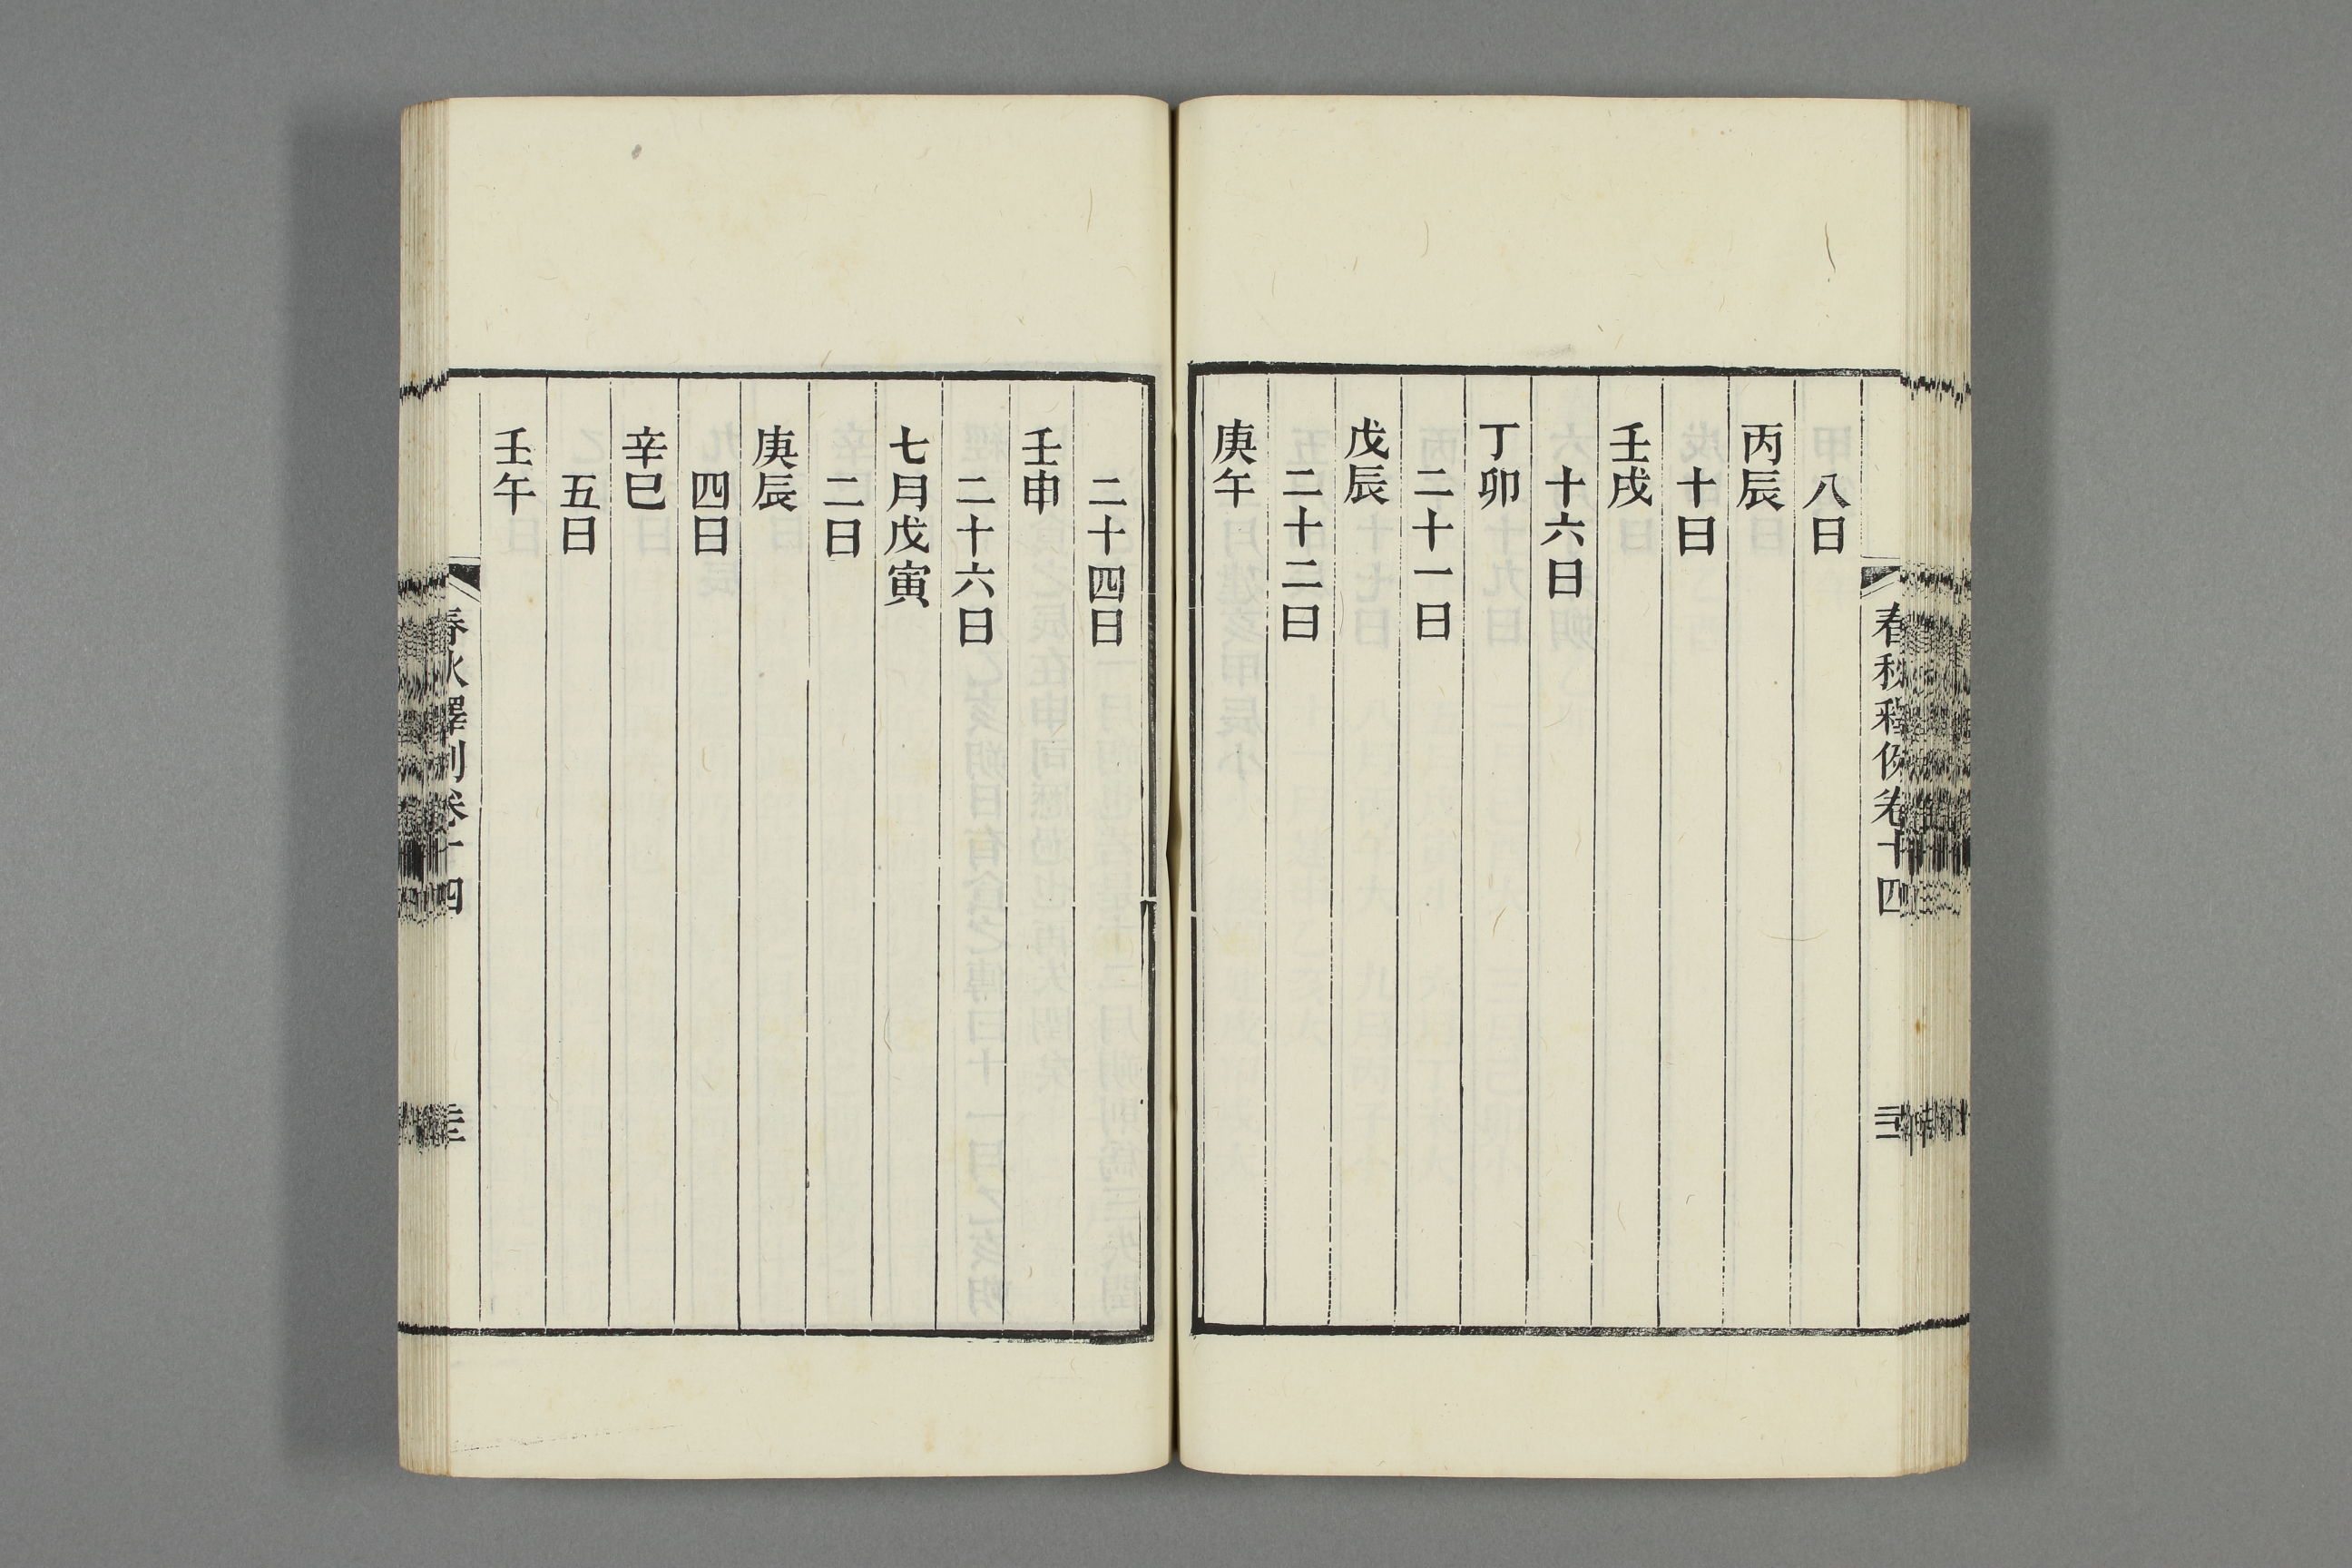 春秋釋例卷十四
八日
丙辰
十日
壬戌
十六日
丁卯
二十一日
戊辰
二十二日
庚午
二十四日
壬申
二十六日
七月戊寅
二日
庚辰
四日
辛巳
五日
壬午
春秋釋例卷十四